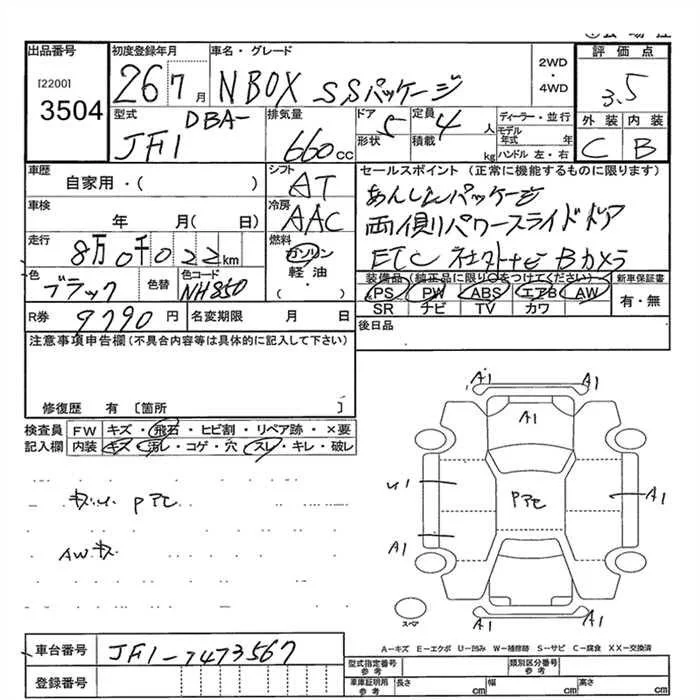 出品番号
[2200]
3504
初度登録年月
26 7月
車名・グレード
NBOX SSパッケージ
2WD
・
4WD
評価点
3.5
外装 内装
C B
型式
DBA-
JF1
排気量
660cc
ドア
5
形状
定員
4人
積載
kg
ディーラー・並行
モデル
年式 年
ハンドル 左・右
車歴
自家用・( )
シフト
AT
車検
年 月( 日)
冷房
AAC
走行
8万0千022km
燃料
ガソリン
軽油
・( )
色
ブラック
色替
色コード
NH850
R券
9790円
名変期限 月 日
セールスポイント (正常に機能するものに限ります)
あんしんパッケージ
両側パワースライドドア
ETC 社外ナビ Bカメラ
装備品(純正品に限り○をつけてください) 新車保証書
PS PW ABS エアB AW
SR ナビ TV カワ
有・無
後日品
注意事項申告欄(不具合内容等は具体的に記入して下さい)
修復歴 有 〔箇所 〕
検査員 FW キズ・飛石・ヒビ割・リペア跡・×要
記入欄 内装 キズ・汚レ・コゲ・穴・スレ・キレ・破レ
AWキズ
A1 A1
A1
A1
A1
スペア
A1
A-キズ E-エクボ U-凹み W-補修跡 S-サビ C-腐食 XX-交換済
車台番号
JF1-7473567
登録番号
型式指定番号
参考
類別区分番号
参考
車庫証明用
参考
長さ cm
幅 cm
高さ cm